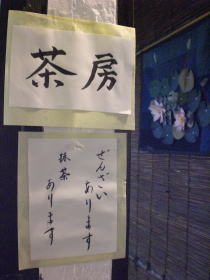 茶房
ぜんざい
あります
抹茶
あります